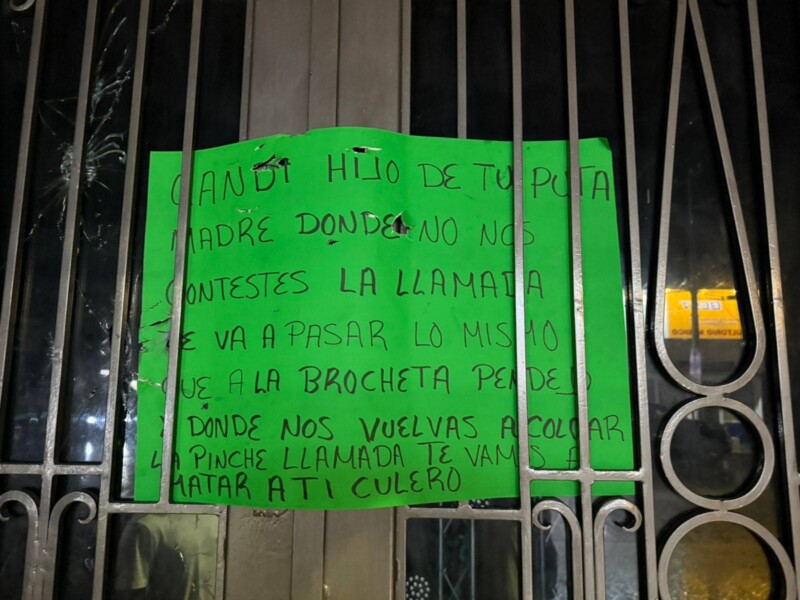 GANDI HIJO DE TU PUTA
MADRE DONDE NO NOS
CONTESTES LA LLAMADA
TE VA A PASAR LO MISMO
QUE A LA BROCHETA PENDEJO
Y DONDE NOS VUELVAS A COLGAR
LA PINCHE LLAMADA TE VAMOS A
MATAR A TI CULERO